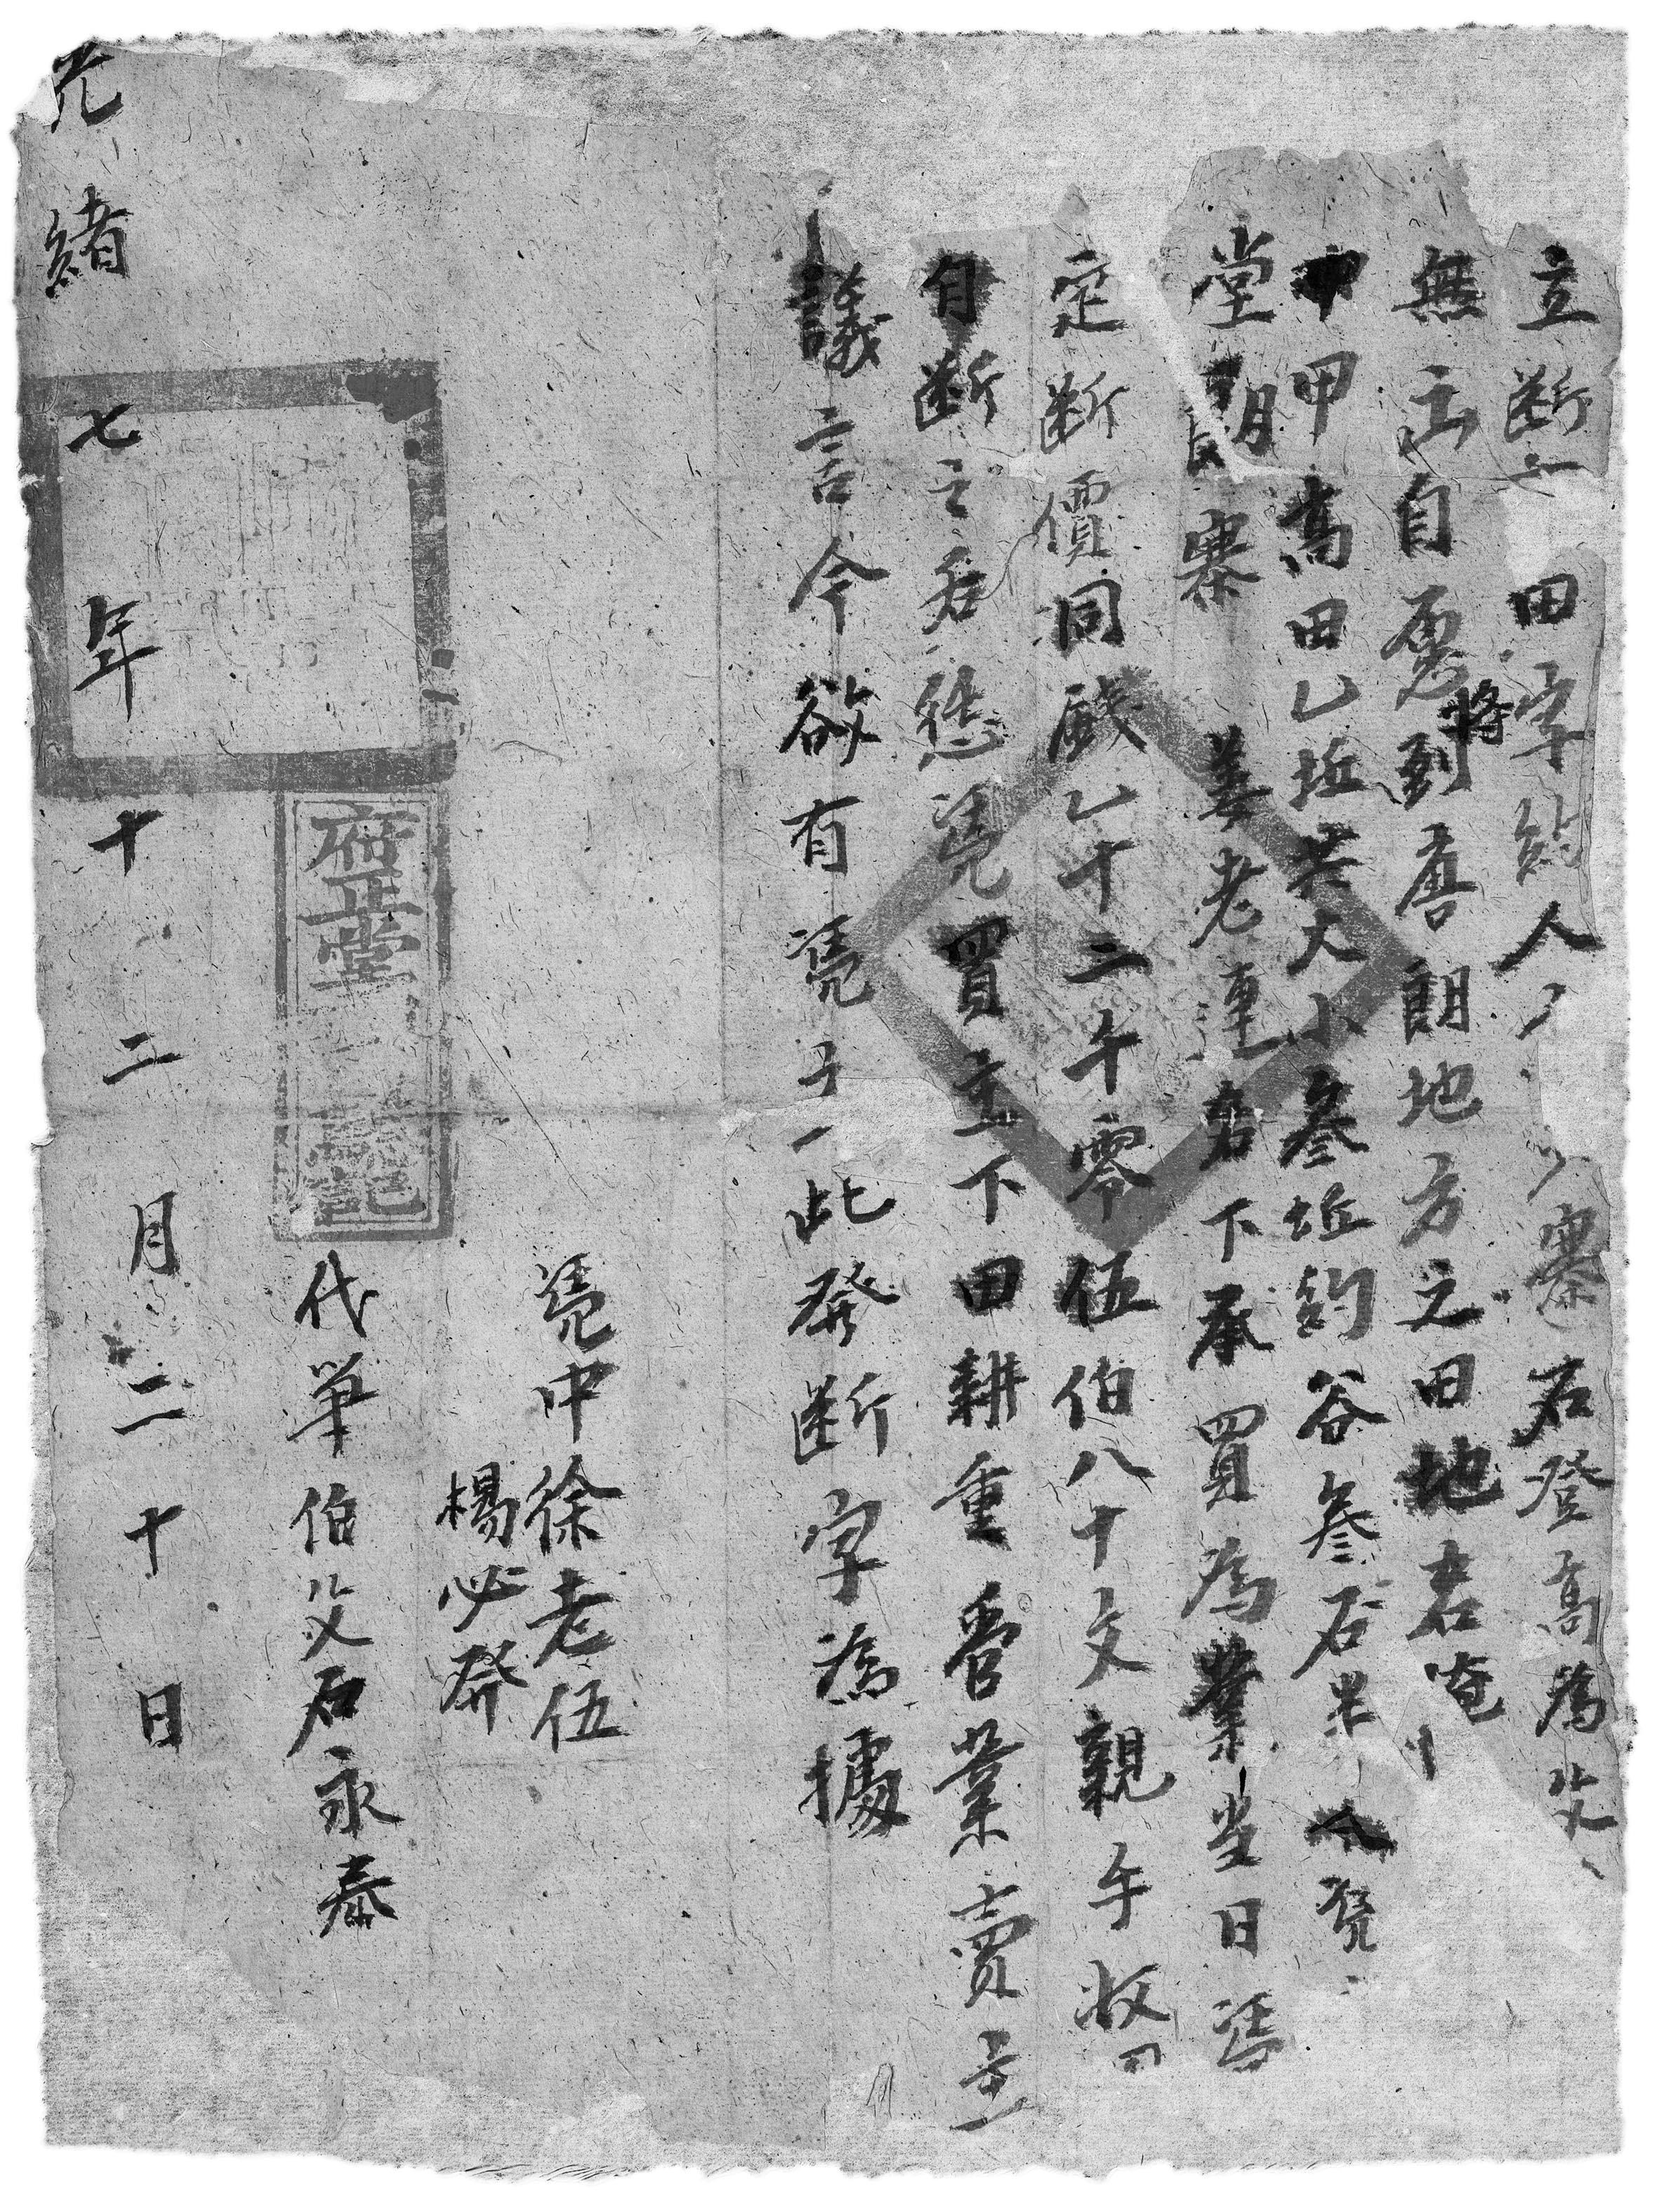 立断田字約人寨石登高爲父
無主自愿將到唐朗地方之田地名唵
甲高田乚坵共大小叁坵約谷叁石
堂朗寨姜老連名下承買為業當日憑
定断價同錢乚十二千零伍伯八十文親手收回
自断之后憑買主下田耕重管業賣主
議言今欲有憑立此發断字為據
憑中徐老伍
楊必發
代筆伯父石永泰
光緒七年十二月二十日
府正堂記